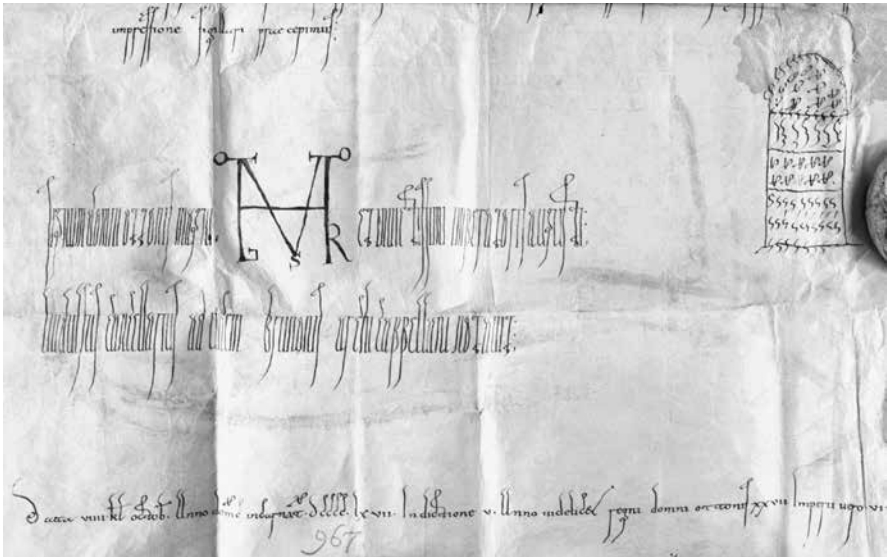 impressione sigillari praecepimus:
Signum domni ottonis magni et invictissimi imperatoris augusti:
cancellarius ad vicem brunonis archicappellani notavit:
Data viiii kl octob. Anno incarnat. dcccc. lx vii. Indictione v. Anno regni domni ottonis xxvii Imperii vero vi
967